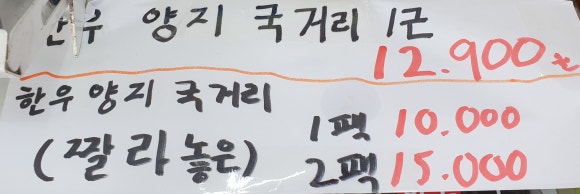 한우 양지 국거리 1근
12.900원
한우 양지 국거리
(짤라놓은)
1팩 10.000
2팩 15.000